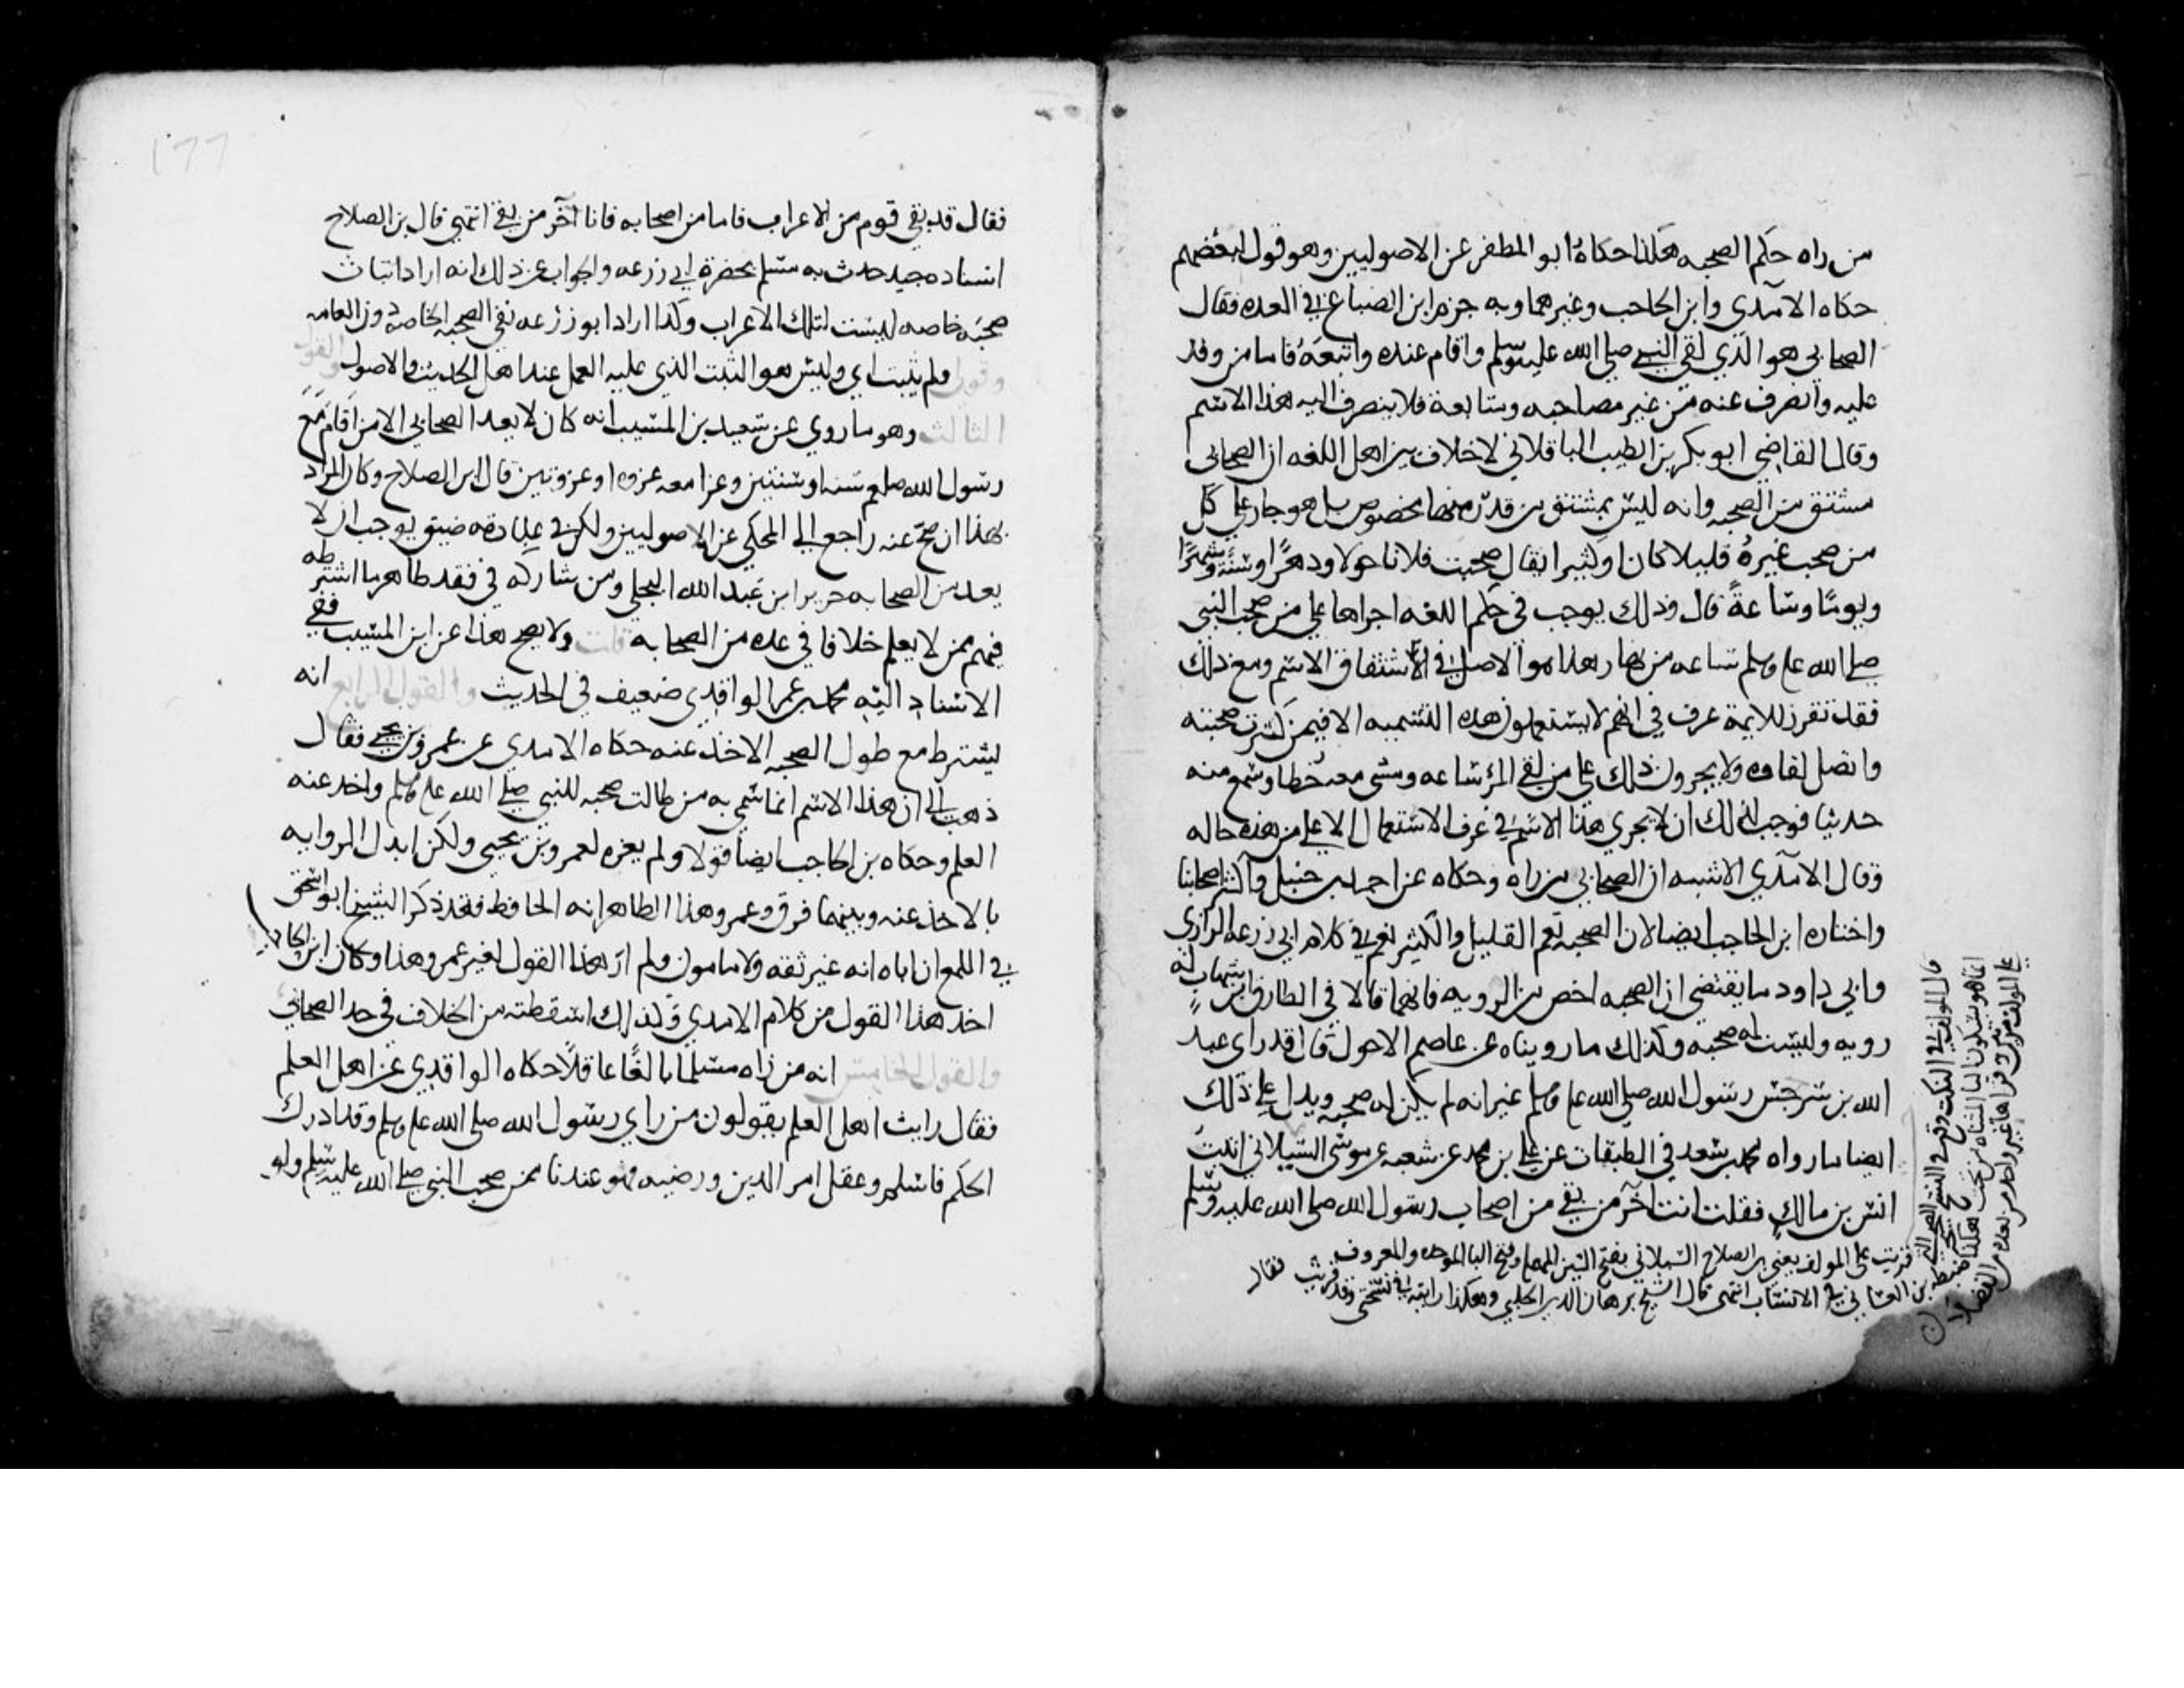 من راه حكم الصحبه هكذا حكاه ابو المظفر عن الاصوليين وهو قول لبعضهم
حكاه الآمدي وابن الحاجب وغيرهما وبه جزم ابن الصباغ في العده فقال
الصحابي هو الذي لقي النبي صلى الله عليه وسلم واقام عنده واتبعه فاما من وفد
عليه وانصرف عنه من غير مصاحبه ومتابعة فلا ينصرف اليه هذا الاسم
وقال القاضي ابو بكر بن الطيب الباقلاني لا خلاف بين اهل اللغه ان الصحابي
مشتق من الصحبه وانه ليس بمشتق من قدر منها مخصوص بل هو جار على كل
من صحب غيره قليلا كان او كثيرا يقال صحبت فلانا حولا ودهرا وسنة وشهرا
ويوما وساعة قال وذلك يوجب في حكم اللغه اجراها على من صحب النبي
صلى الله علم وسلم ساعه من نهار هذا هو الاصل في الاشتقاق الاسم ومع ذلك
فقد تقرر للايمة عرف في انهم لا يستعملون هذه التسميه الا فيمن كثرت صحبته
واتصل لقاوه ولا يجرون ذلك على من لقي المرء ساعه ومشى معه خطا وسمع منه
حديثا فوجب لذلك ان لا يجري هذا الاسم في عرف الاستعمال الا على من هذه حاله
وقال الآمدي الاشبه ان الصحابي من راه وحكاه عن احمد بن حنبل واكثر اصحابنا
واختاره ابن الحاجب ايضا لان الصحبه تعم القليل والكثير نعم في كلام ابي زرعه الرازي
وابي داود ما يقتضي ان الصحبه اخص من الرويه فانهما قالا في الطارق بن شهاب له
رويه وليست له صحبه وكذلك ما رويناه عن عاصم الاحول قال قد راى عبد
الله بن سرجس رسول الله صلى الله علم وسلم غير انه لم يكن له صحبه ويدل على ذلك
ايضا ما رواه محمد بن سعد في الطبقات عن علي بن محمد عن شعبه عن موسى السيلاني اتيت
انس بن مالك فقلت انت آخر من بقي من اصحاب رسول الله صلى الله عليه وسلم
قال المولف في النكت وقع في النسخ الصحيحه التي
قريت على المولف يعني بن الصلاح السبلاني بفتح السين المهمله وفتح البا الموحده والمعروف
انما هو بسكون اليا المثناه من تحت هكذا ضبطه بن السمعاني في الانساب انتهى قال الشيخ برهان الدين الحلبي وهكذا رايته في نسختي وقد قريت
على المولف مرتين وقراها غير واحد من بعده من الفضلاء
فقال
١٦٦
فقال قد بقي قوم من الاعراب فاما من اصحابه فانا آخر من بقي انتهى قال بن الصلاح
اسناده جيد حدث به مسلم بحضرة ابي زرعه والجواب عن ذلك انه اراد اثبات
صحبة خاصه ليست لتلك الاعراب وكذا اراد ابو زرعه نفي الصحبه الخاصه دون العامه
وقوله فلم يثبت اي وليس هو الثبت الذي عليه العمل عند اهل الحديث والاصول والقول
الثالث وهو ما روي عن سعيد بن المسيب انه كان لا يعد الصحابي الا من اقام مع
رسول الله صلعم سنه او سنتين وغزا معه غزوه او غزوتين قال ابن الصلاح وكان المراد
بهذا ان صح عنه راجع الى المحكي عن الاصوليين ولكن في عبارته ضيق يوجب ان لا
يعد من الصحابه جرير ابن عبد الله البجلي ومن شاركه في فقد ظاهر ما اشترطه
فيهم ممن لا يعلم خلافا في عده من الصحابه قلت ولا يصح هذا عن ابن المسيب ففي
الاسناد اليه محمد بن عمر الواقدي ضعيف في الحديث والقول الرابع انه
يشترط مع طول الصحبه الاخذ عنه حكاه الامدي عن عمرو بن يحيى فقال
ذهب الى ان هذا الاسم انما سمي به من طالت صحبه للنبي صلى الله علم وسلم واخذ عنه
العلم وحكاه بن الحاجب ايضا قولا ولم يعزه لعمرو بن يحيى ولكن ابدل الروايه
بالاخذ عنه وبينهما فرق وعمرو هذا الظاهر انه الحافظ فقد ذكر الشيخ ابو اسحق
في اللمع ان اباه انه غير ثقه ولا مامون ولم ار هذا القول لغير عمرو هذا وكان ابن الحاجب
اخذ هذا القول من كلام الامدي ولذلك اسقطته من الخلاف في حد الصحابي
والقول الخامس انه من راه مسلما بالغا عاقلا حكاه الواقدي عن اهل العلم
فقال رايت اهل العلم يقولون من راى رسول الله صلى الله علم وسلم وقد ادرك
الحلم فاسلم وعقل امر الدين ورضيه فهو عندنا ممن صحب النبي صلى الله عليه وسلم ولو